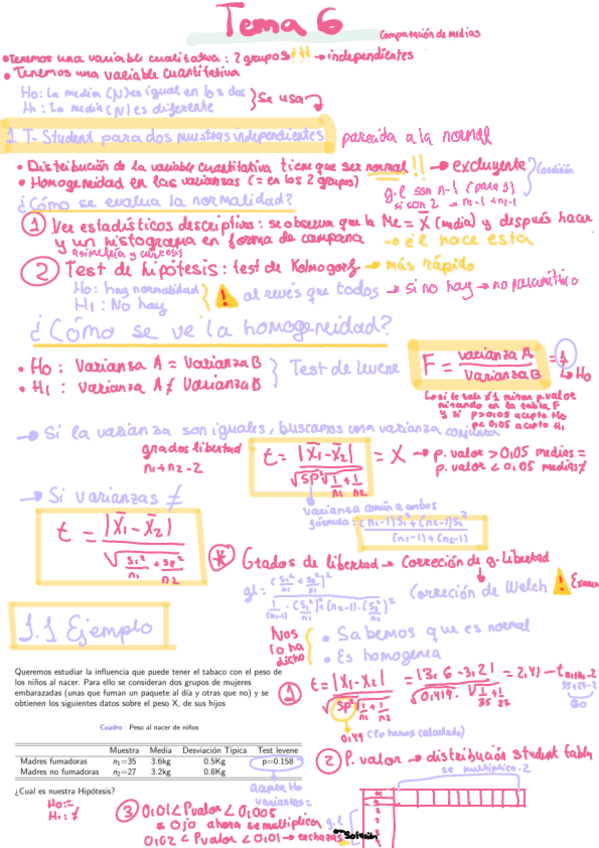 Tema 6
Comparación de medias
• Tenemos una variable cualitativa: 2 grupos!!! → independientes
• Tenemos una variable cuantitativa
Ho: La media (N) es igual en los dos
H1: La media (N) es diferente
} Se usa
1. T-Student para dos muestras independientes
parecida a la normal
• Distribución de la variable cuantitativa tiene que ser normal!! → excluyente
• Homogeneidad en las varianzas (= en los 2 grupos)
} Condición
g.l son n-1 (para 1)
si son 2 → n1-1+n2-1
¿Cómo se evalua la normalidad?
① Ver estadísticos descriptivos: se observa que la Me = X̄ (media) y después hacer
y un histograma en forma de campana → él hace esta
asimetría y curtosis
② Test de hipótesis: test de Kolmogorf → más rápido
Ho: hay normalidad
H1: No hay
} ⚠ al revés que todos → si no hay → no paramétrico
¿Cómo se ve la homogeneidad?
• Ho: Varianza A = Varianza B
• H1: Varianza A ≠ Varianza B
} Test de levene
F = varianza A / varianza B = 1
↳ Ho
↳ si le sale ≠ 1 miran p.valor
mirando en la tabla F
y si p>0.05 acepto Ho
p<0,05 acepto H1
→ Si la varianza son iguales, buscamos una varianza conjunta
grados libertad
n1+n2-2
t = |X̄1-X̄2| / √Sp² √1/n1 + 1/n2 = X → p.valor > 0,05 medias =
p.valor < 0,05 medias ≠
→ Si varianzas ≠
varianza común a ambos
fórmula: (n1-1)S1² + (n2-1)S2² / (n1-1)+(n2-1)
t = |X̄1-X̄2| / √S1²/n1 + S2²/n2
* Grados de libertad → Correción de g. Libertad
Correción de Welch ⚠ Examen
1.1 Ejemplo
Nos lo ha dicho
• Sabemos que es normal
• Es homogenia
Queremos estudiar la influencia que puede tener el tabaco con el peso de
los niños al nacer. Para ello se consideran dos grupos de mujeres
embarazadas (unas que fuman un paquete al día y otras que no) y se
obtienen los siguientes datos sobre el peso X, de sus hijos
① t = |X̄1-X̄2| / √Sp² √1/n1 + 1/n2 = |3,6-3,2| / √0,419 · √1/35 + 1/27 = 2,41 → t n1+n2-2
35+27-2
60
(lo hemos calculado)
Cuadro : Peso al nacer de niños
Muestra Media Desviación Típica Test levene
Madres fumadoras n1=35 3.6kg 0.5Kg p=0.158
Madres no fumadoras n2=27 3.2kg 0.8Kg
② P.valor → distribución student tabla
se multiplica·2
¿Cual es nuestra Hipótesis?
Ho: =
H1: ≠
acepta Ho
varianzas =
g.l
③ 0,01 < Pvalor < 0,005
Ojo ahora se multiplica
0,02 < Pvalor < 0,01 → rechazas
Solución